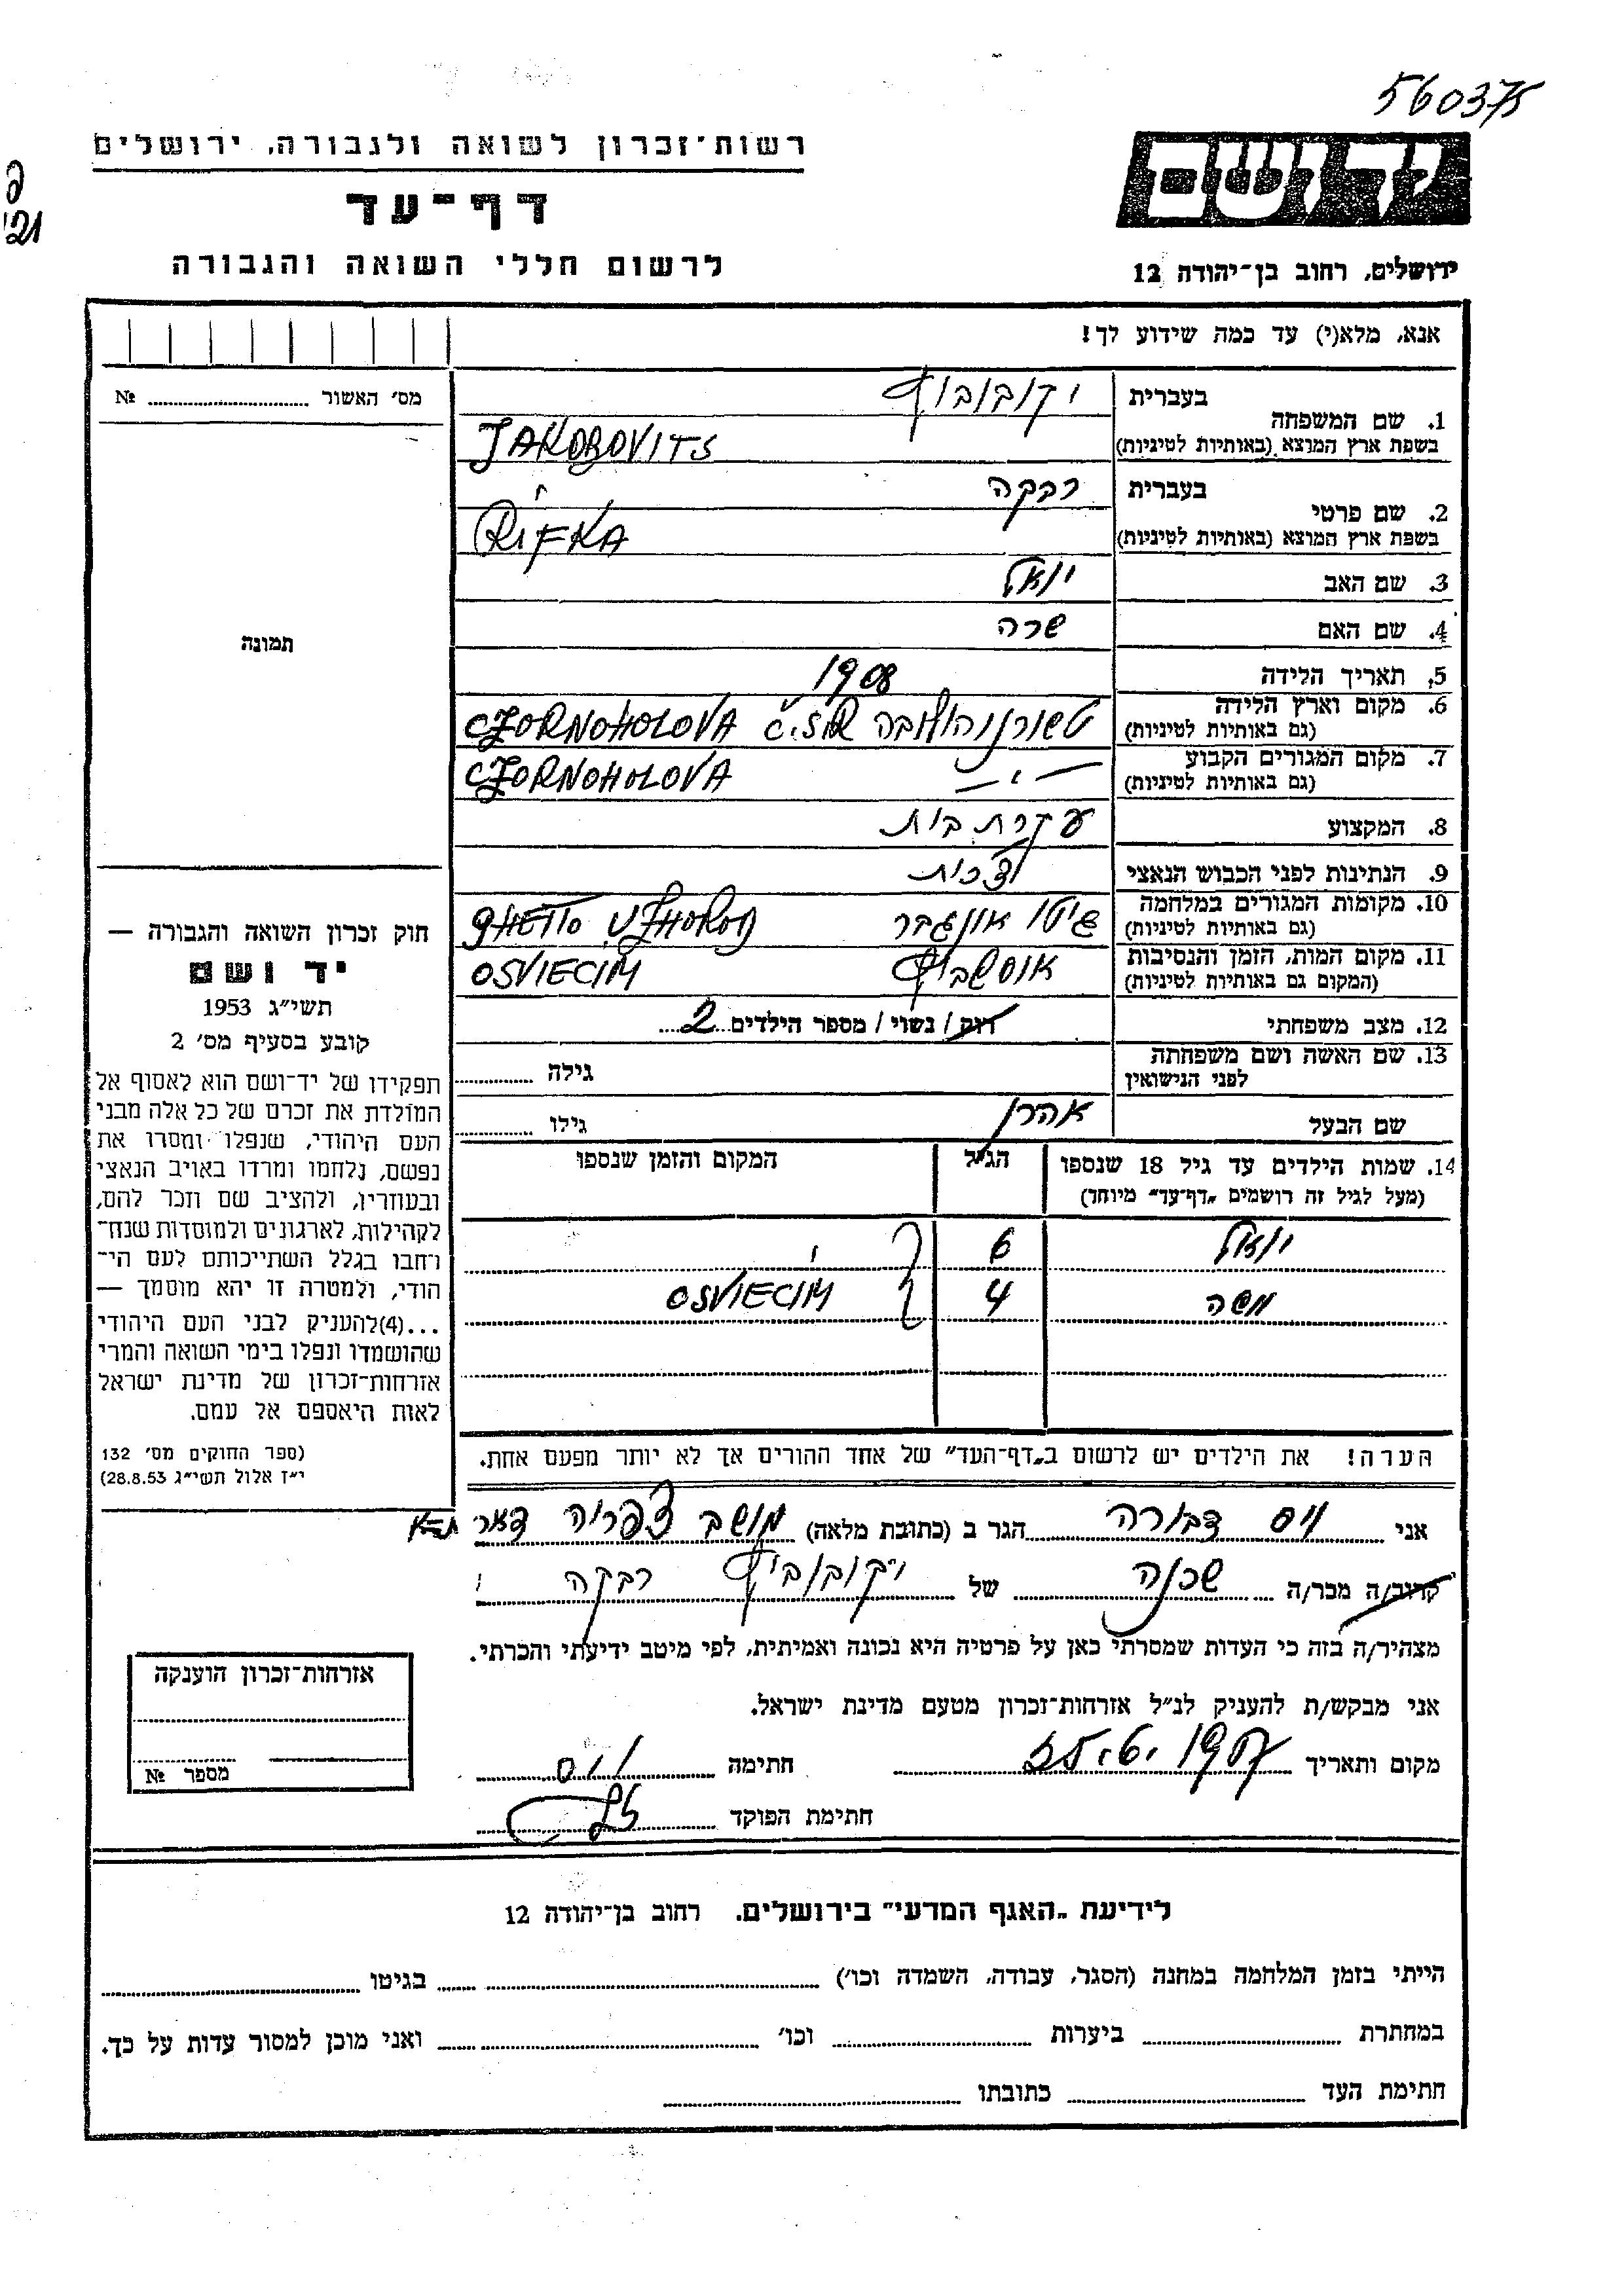 560375
יד ושם
רשות־זכרון לשואה ולגבורה, ירושלים
דף־עד
ירושלים, רחוב בן־יהודה 12
לרשום חללי השואה והגבורה
אנא, מלא(י) עד כמה שידוע לך!
מס׳ האשור № 
1. שם המשפחה
בעברית יקובוביץ
בשפת ארץ המוצא (באותיות לטיניות) JAKOBOVITS
2. שם פרטי
בעברית רבקה
בשפת ארץ המוצא (באותיות לטיניות) RIFKA
3. שם האב יואל
4. שם האם שרה
5. תאריך הלידה 1908
6. מקום וארץ הלידה טשורנוהולובה CZORNOHOLOVA Č.S.R
(גם באותיות לטיניות)
7. מקום המגורים הקבוע — ״ — CZORNOHOLOVA
(גם באותיות לטיניות)
8. המקצוע עקרת בית
9. הנתינות לפני הכבוש הנאצי צ׳כית
10. מקומות המגורים במלחמה גיטו אונגבר GHETTO UZHOROD
(גם באותיות לטיניות)
11. מקום המות, הזמן והנסיבות אוסשביץ OSVIECIM
(המקום גם באותיות לטיניות)
12. מצב משפחתי רווק / נשוי / מספר הילדים 2
13. שם האשה ושם משפחתה גילה
לפני הנישואין
שם הבעל אהרן גילו
14. שמות הילדים עד גיל 18 שנספו הגיל המקום והזמן שנספו
(מעל לגיל זה רושמים „דף־עד״ מיוחד)
יואל 6
משה 4 OSVIECIM
הערה! את הילדים יש לרשום ב„דף־העד״ של אחד ההורים אך לא יותר מפעם אחת.
תמונה
חוק זכרון השואה והגבורה —
יד ושם
תשי״ג 1953
קובע בסעיף מס׳ 2
תפקידו של יד־ושם הוא לאסוף אל
המולדת את זכרם של כל אלה מבני
העם היהודי, שנפלו ומסרו את
נפשם, נלחמו ומרדו באויב הנאצי
ובעוזריו, ולהציב שם וזכר להם,
לקהילות, לארגונים ולמוסדות שנח־
רחבו בגלל השתייכותם לעם הי־
הודי, ולמטרה זו יהא מוסמך —
...(4)להעניק לבני העם היהודי
שהושמדו ונפלו בימי השואה והמרי
אזרחות־זכרון של מדינת ישראל
לאות היאספם אל עמם.
(ספר החוקים מס׳ 132
י״ז אלול תשי״ג 28.8.53)
אני וויס דבורה הגר ב (כתובת מלאה) מושב צפריה דאר
קרוב/ה מכר/ה שכנה של יקובוביץ רבקה
מצהיר/ה בזה כי העדות שמסרתי כאן על פרטיה היא נכונה ואמיתית, לפי מיטב ידיעתי והכרתי.
אני מבקש/ת להעניק לנ״ל אזרחות־זכרון מטעם מדינת ישראל.
מקום ותאריך חתימה וויס
חתימת הפוקד
אזרחות־זכרון הוענקה
מספר №
לידיעת „האגף המדעי״ בירושלים. רחוב בן־יהודה 12
הייתי בזמן המלחמה במחנה (הסגר, עבודה, השמדה וכו׳) בגיטו
במחתרת ביערות וכו׳ ואני מוכן למסור עדות על כך.
חתימת העד כתובתו